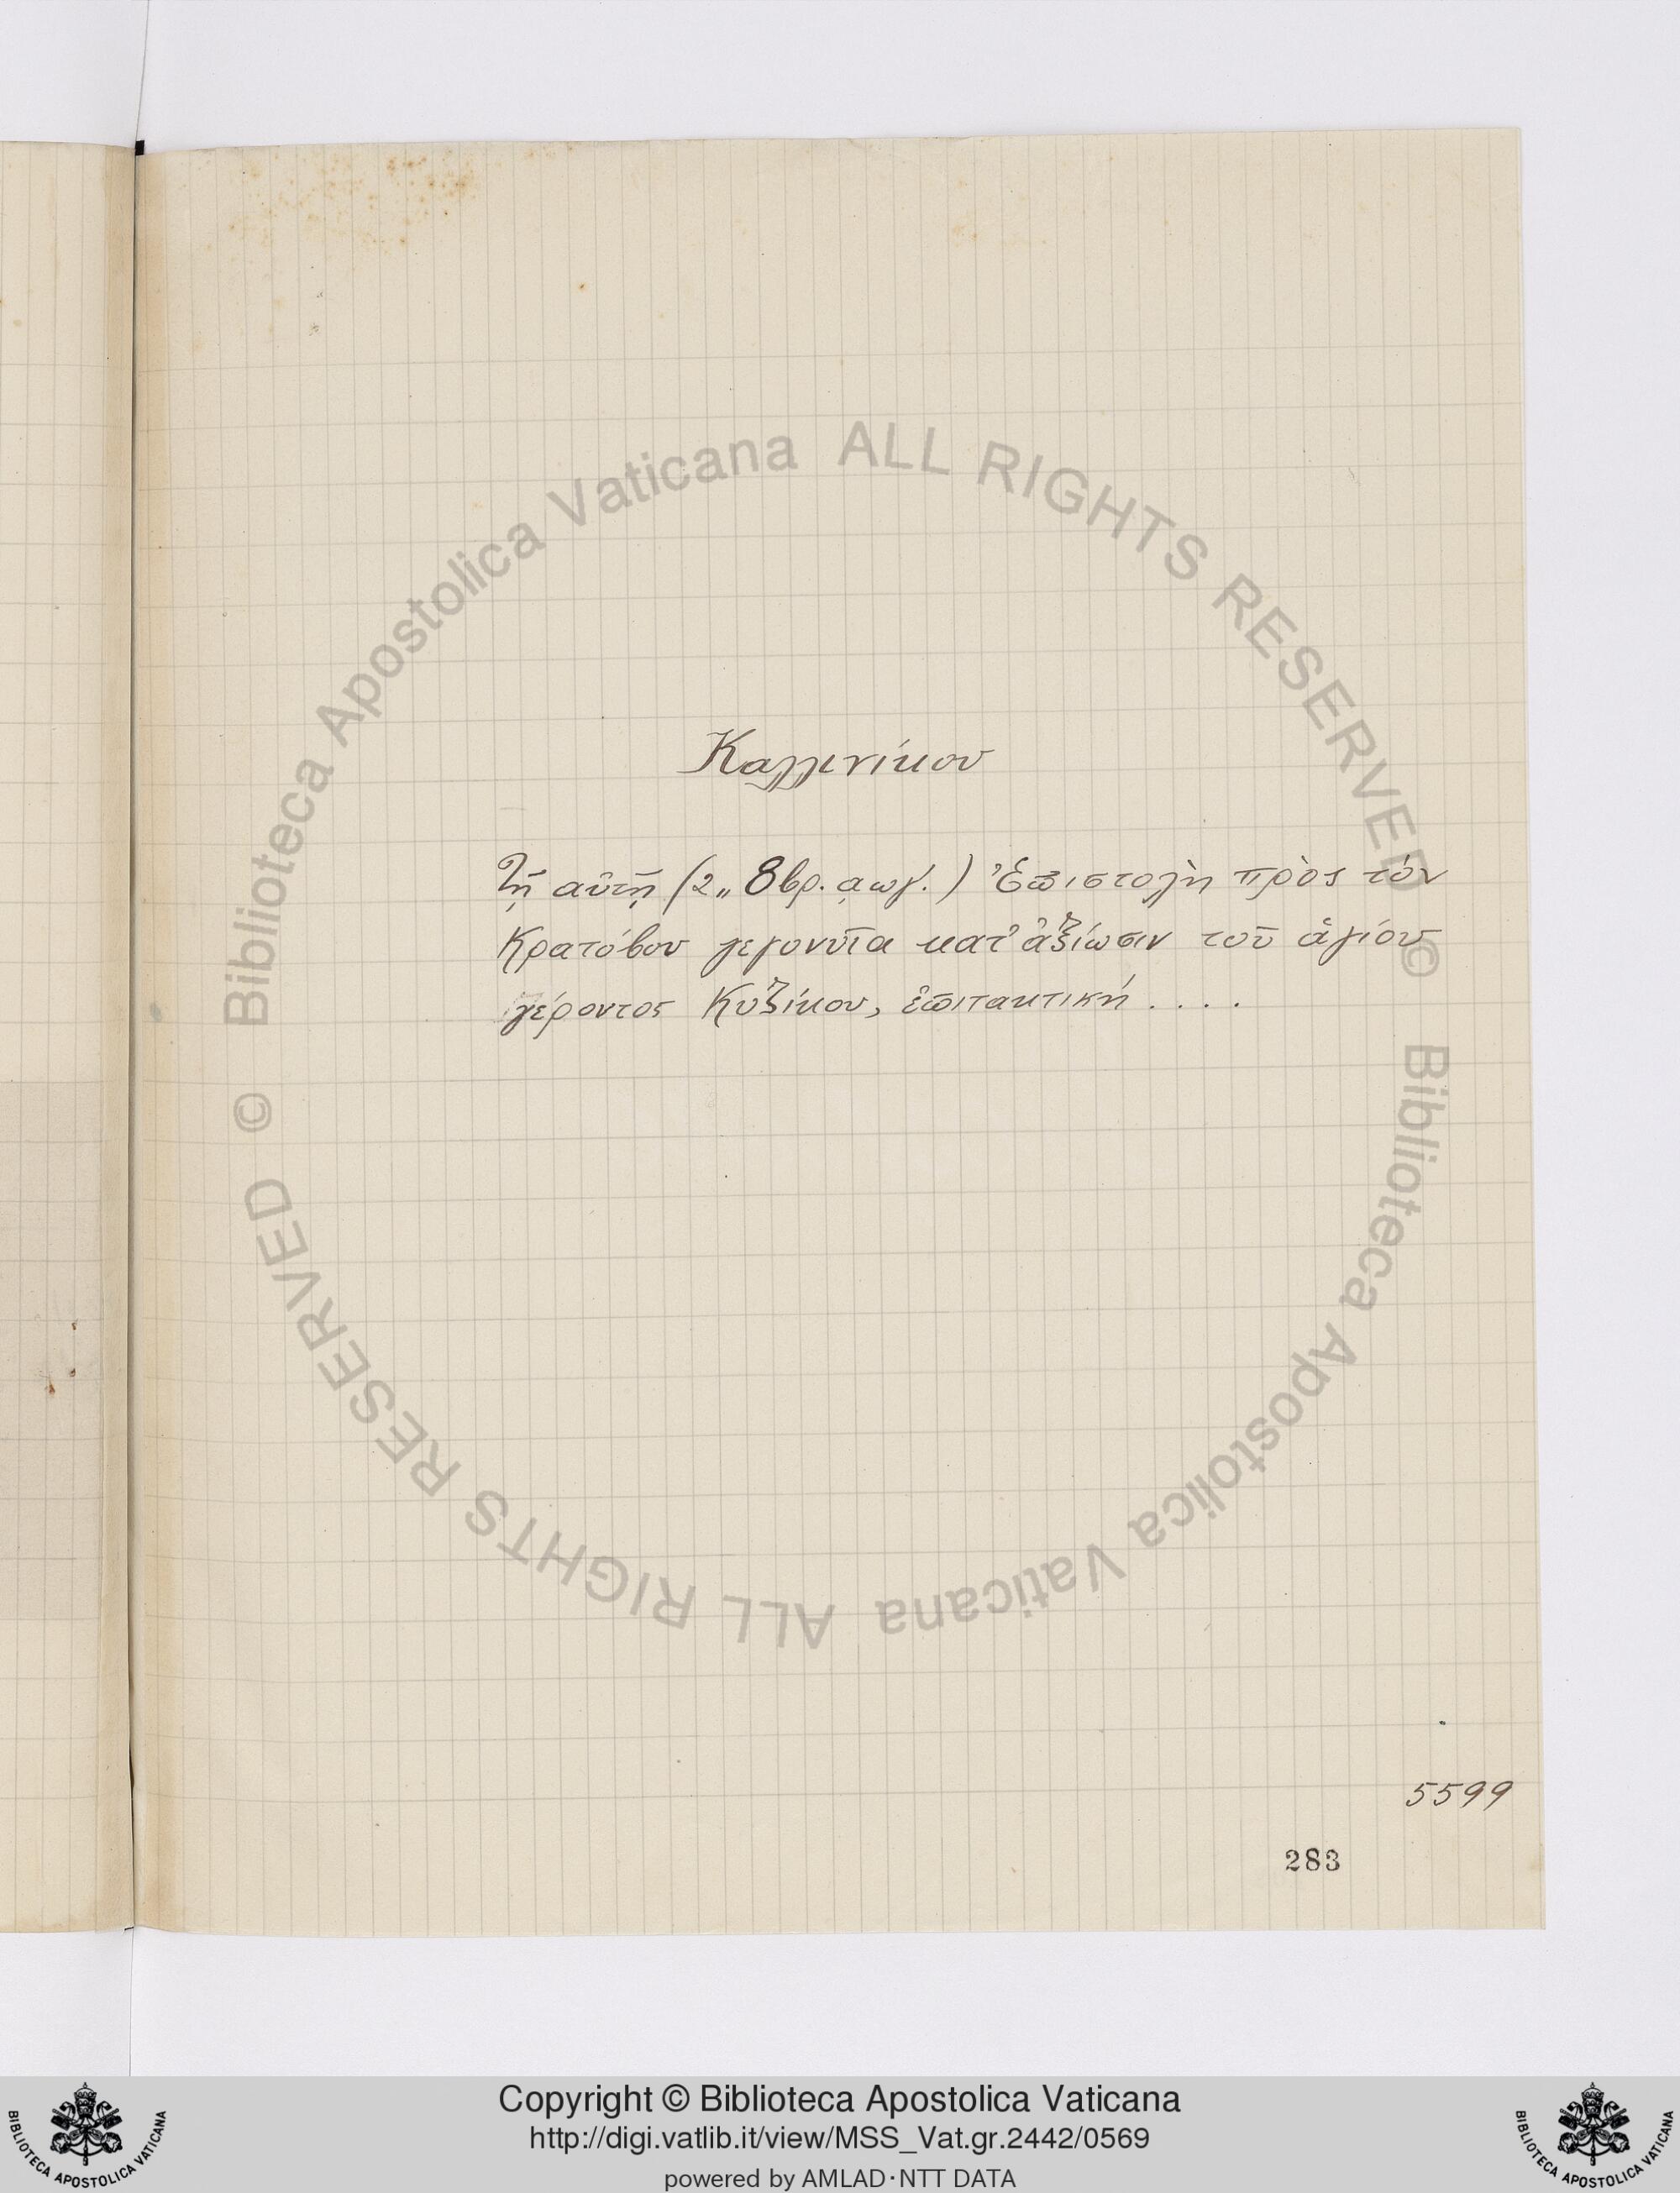 Καλλινίκου
Τῇ αὐτῇ (2,, 8βρ. ͵αωγ΄.) Ἐπιστολὴ πρὸς τὸν
Κρατόβου γεγονυῖα κατ' ἀξίωσιν τοῦ ἁγίου
γέροντος Κυζίκου, ἐπιτακτική . . . .
5599
283
© Biblioteca Apostolica Vaticana ALL RIGHTS RESERVED
© Biblioteca Apostolica Vaticana ALL RIGHTS RESERVED
Copyright © Biblioteca Apostolica Vaticana
http://digi.vatlib.it/view/MSS_Vat.gr.2442/0569
powered by AMLAD·NTT DATA
BIBLIOTECA APOSTOLICA VATICANA
BIBLIOTECA APOSTOLICA VATICANA